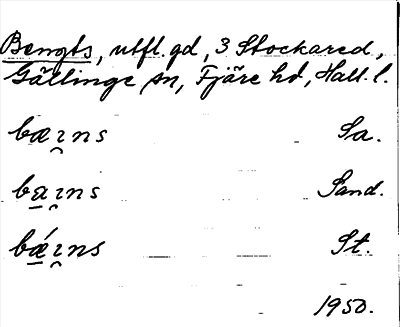 Bengts, utfl. gd, 3 Stockared,
Gällinge sn, Fjäre hd, Hall. l.
bæı̯ns Sa.
ba̱ı̯ns Sand.
bǽ̱ı̯ns St.
1950.